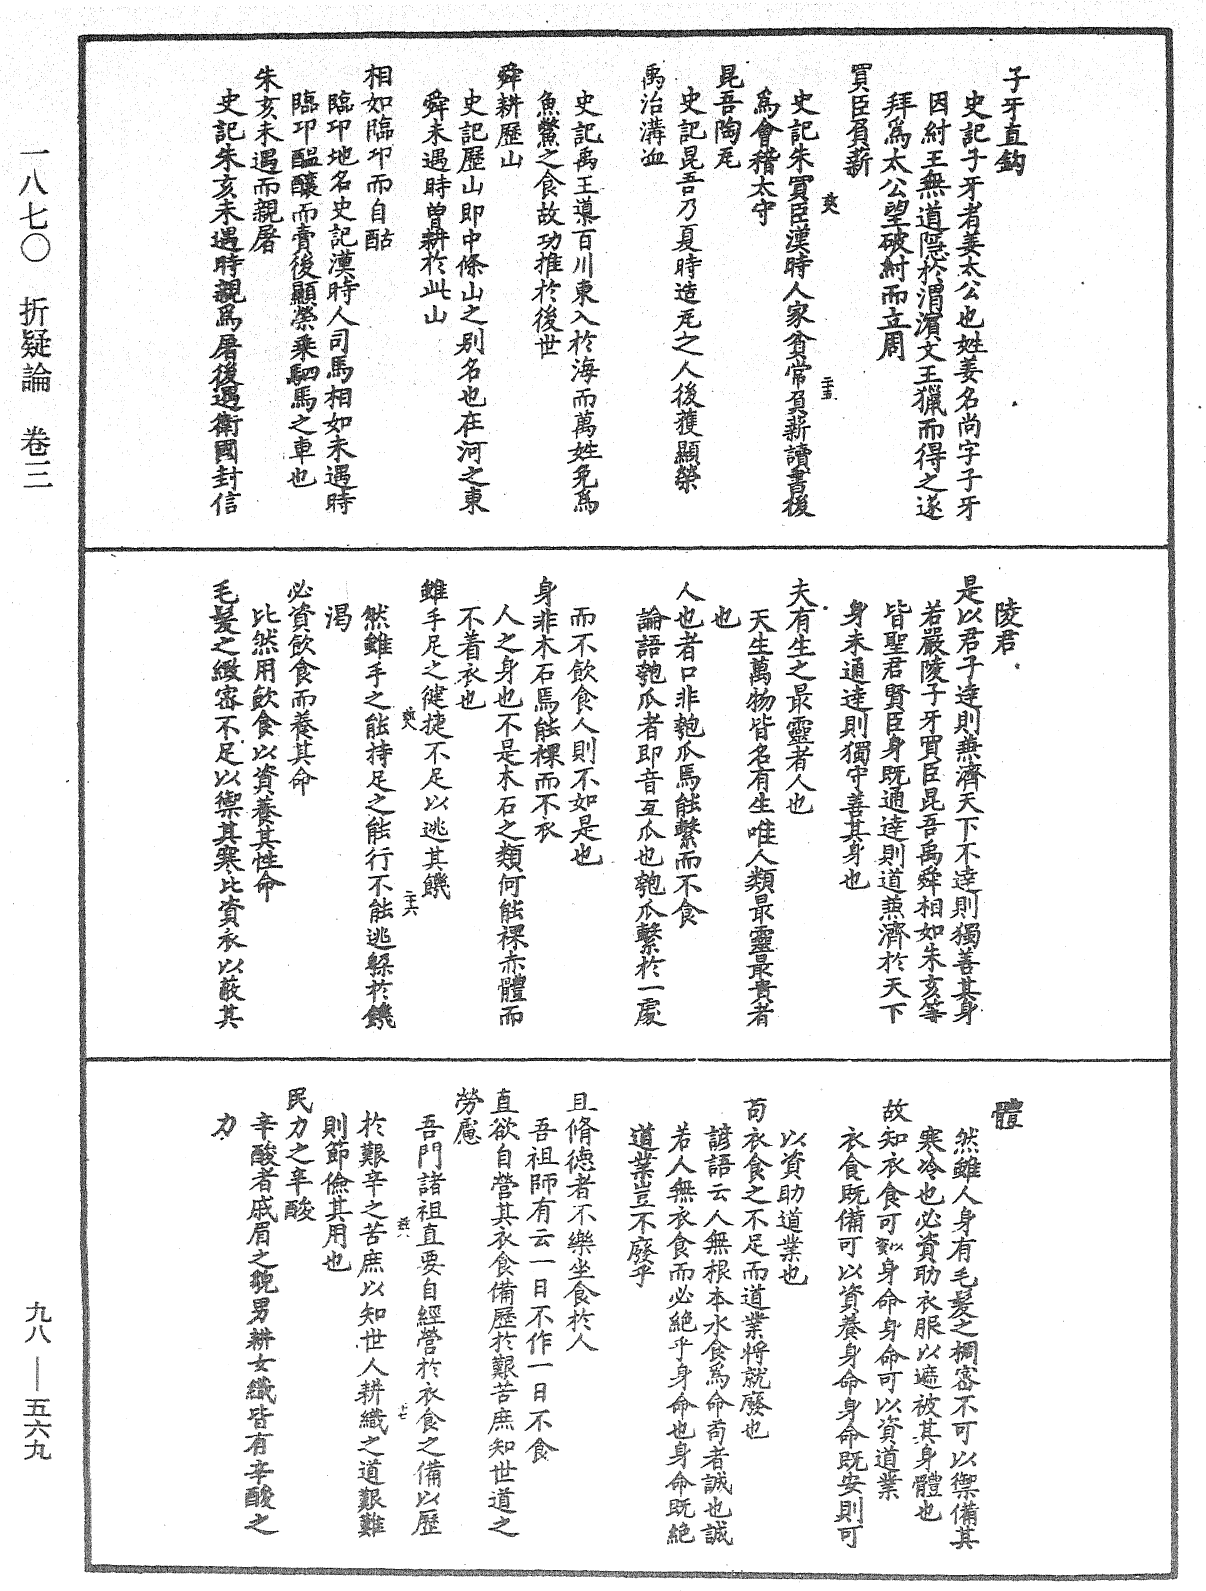 子牙直鈎
史記子牙者姜太公也姓姜名尚字子牙
因紂王無道隱於渭濵文王獵而得之遂
拜爲太公望破紂而立周
買臣負薪
史記朱買臣漢時人家貧常負薪讀書後
爲會稽太守
昆吾陶瓦
史記昆吾乃夏時造瓦之人後獲顯榮
禹治溝洫
史記禹王導百川東入於海而萬姓免爲
魚鱉之食故功推於後世
舜耕歷山
史記歷山即中條山之别名也在河之東
舜未遇時曽耕於此山
相如臨邛而自酤
臨邛地名史記漢時人司馬相如未遇時
臨邛醖釀而賣後顯榮乘駟馬之車也
朱亥未遇而親屠
史記朱亥未遇時親爲屠後遇衛國封信
陵君
是以君子達則兼濟天下不達則獨善其身
若嚴陵子牙買臣昆吾禹舜相如朱亥等
皆聖君賢臣身既通達則道兼濟於天下
身未通達則獨守善其身也
夫有生之最靈者人也
天生萬物皆名有生唯人類最靈最貴者
也
人也者口非匏瓜焉能繫而不食
論語匏瓜者即音互瓜也匏瓜繫於一處
而不飲食人則不如是也
身非木石焉能裸而不衣
人之身也不是木石之類何能裸赤體而
不着衣也
雖手足之健捷不足以逃其饑
然雖手之能持足之能行不能逃躱於饑
渴
必資飲食而養其命
比然用飲食以資養其性命
毛髮之緻密不足以禦其寒比資衣以蔽其
體
然雖人身有毛髮之稠密不可以禦備其
寒冷也必資助衣服以遮被其身體也
故知衣食可以資身命身命可以資道業
衣食既備可以資養身命身命既安則可
以資助道業也
苟衣食之不足而道業將就廢也
諺語云人無根本水食爲命苟者誠也誠
若人無衣食而必絶乎身命也身命既絶
道業豈不廢乎
且脩德者不樂坐食於人
吾祖師有云一日不作一日不食
直欲自營其衣食備歷於艱苦庶知世道之
勞慮
吾門諸祖直要自經營於衣食之備以歷
於艱辛之苦庶以知世人耕織之道艱難
則節儉其用也
民力之辛酸
辛酸者戚眉之皃男耕女織皆有辛酸之
力
一八七〇 折疑論 卷三
九八—五六九